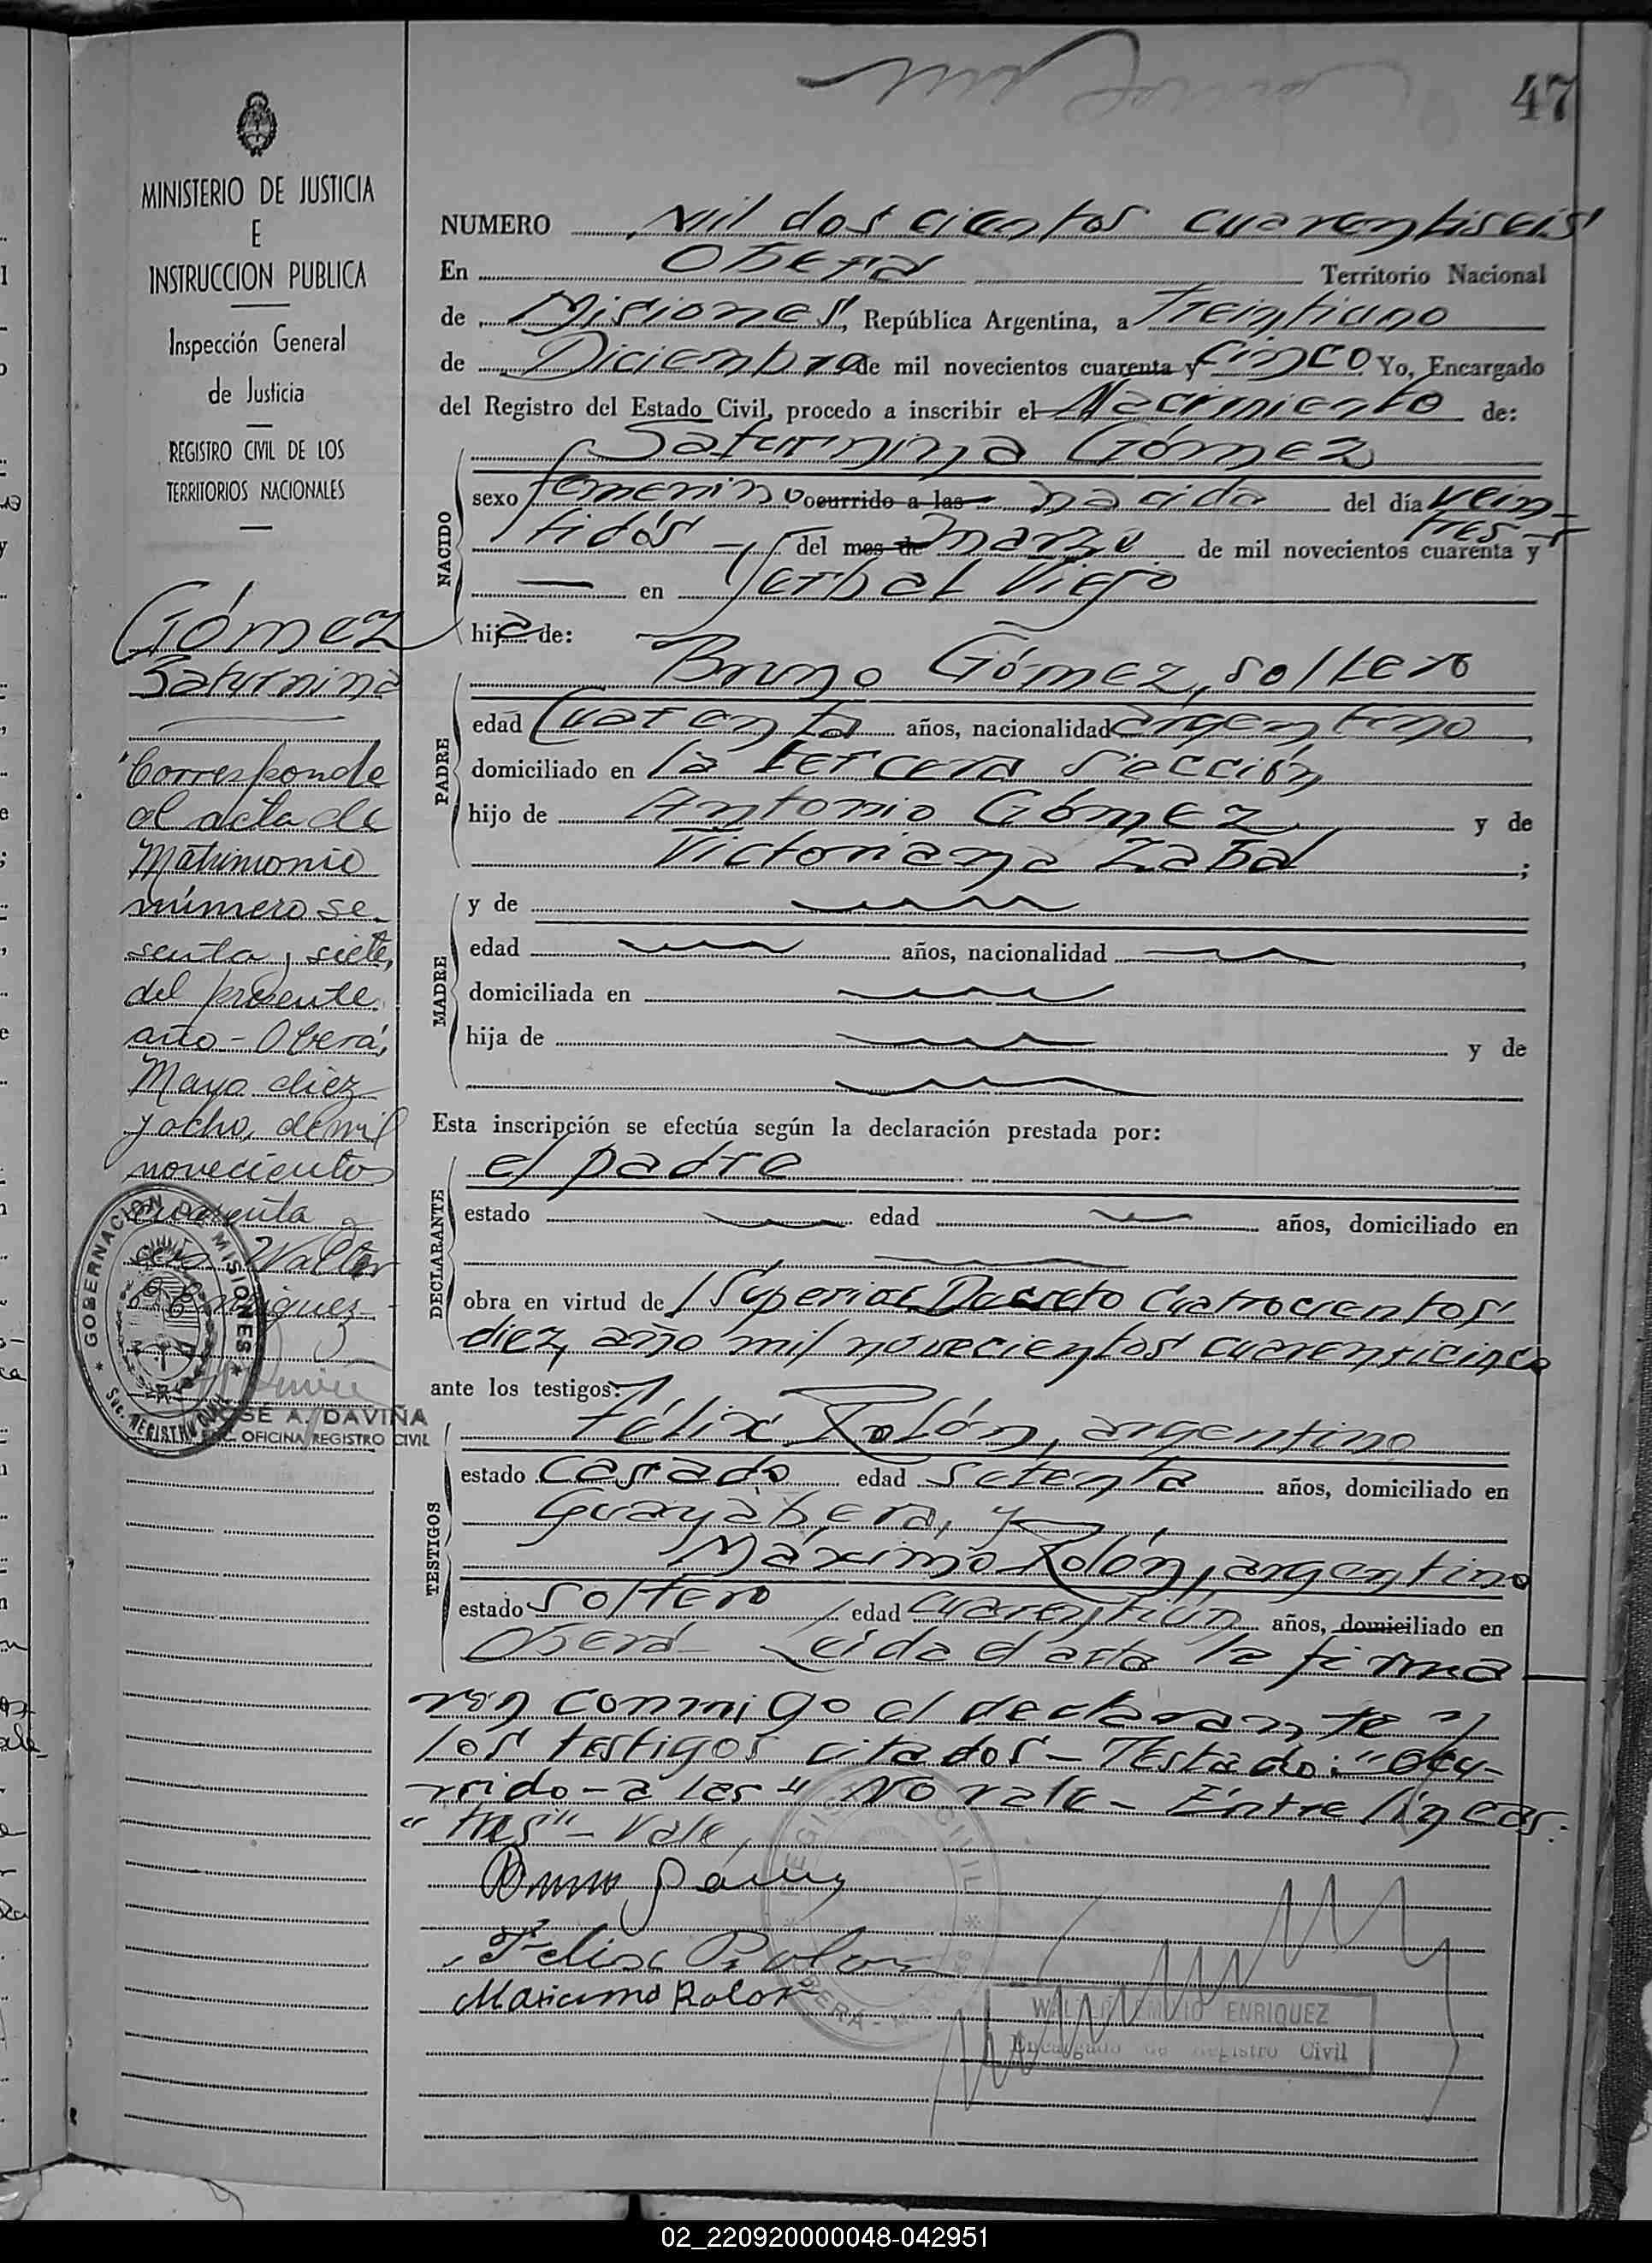 47
MINISTERIO DE JUSTICIA
E
INSTRUCCION PUBLICA
Inspección General
de Justicia
REGISTRO CIVIL DE LOS
TERRITORIOS NACIONALES
Gómez
Saturnina
Corresponde
al acta de
Matrimonio
número se-
senta y siete,
del presente
año - Oberá,
Mayo diez
y ocho, de mil
novecientos
cuarenta y
seis Walter
E Enriquez -
GOBERNACION DE MISIONES
Suc. REGISTRO CIVIL
JOSE A. DAVIÑA
ENC. OFICINA REGISTRO CIVIL
NUMERO Mil doscientos cuarentiseis
En Oberá Territorio Nacional
de Misiones, República Argentina, a Treintiuno
de Diciembre de mil novecientos cuarenta y cinco Yo, Encargado
del Registro del Estado Civil, procedo a inscribir el Nacimiento de:
NACIDO
Saturnina Gómez
sexo femenino ocurrido a las nacida del día vein-
tres
tidós - del mes de marzo de mil novecientos cuarenta y
— en Yerbal Viejo
hija de:
PADRE
Bruno Gómez, soltero
edad Cuarenta años, nacionalidad argentino,
domiciliado en la tercera Sección
hijo de Antonio Gómez y de
Victoriana Zabal;
MADRE
y de
edad años, nacionalidad,
domiciliada en
hija de y de
Esta inscripción se efectúa según la declaración prestada por:
DECLARANTE
el padre
estado edad años, domiciliado en
obra en virtud de l Superior Decreto Cuatrocientos
diez, año mil novecientos cuarenticinco
ante los testigos:
TESTIGOS
Félix Rolón, argentino
estado casado edad setenta años, domiciliado en
Guayabera, y
Máximo Rolón, argentino
estado soltero edad cuarentiún años, domiciliado en
Oberá - Leida el acta la firma
ron conmigo el declarante y
los testigos citados - Testado: "ocu-
rrido - a las" No vale - Entre líneas:
"tres" - Vale,
Bruno Gómez
Felix Rolon
Maximo Rolon
REGISTRO CIVIL
OBERA
WALTER EMILIO ENRIQUEZ
Encargado de Registro Civil
02_220920000048-042951